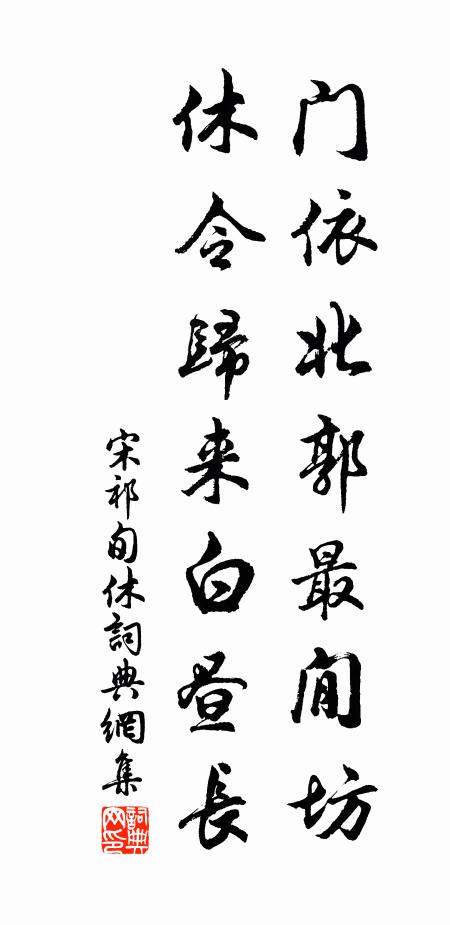 门依北郭最閒坊
休令歸来白昼長
宋祁旬休詞典網集
詞典网印